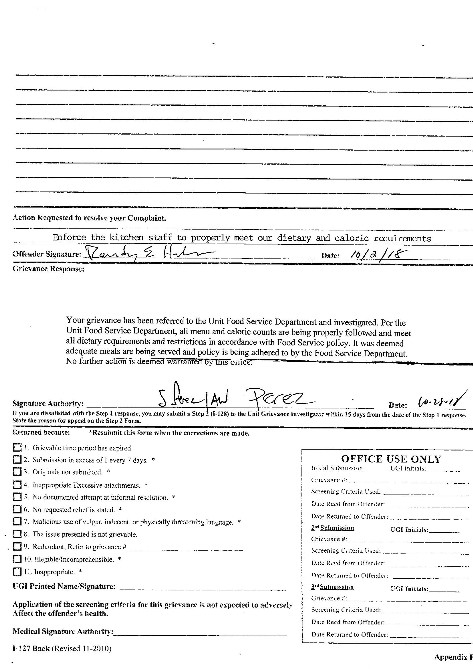 Action Requested to resolve your Complaint.
Enforce the kitchen staff to properly meet our dietary and caloric requirements
Offender Signature: Randy E. Date: 10/2/18
Grievance Response:
Your grievance has been referred to the Unit Food Service Department and investigated. Per the
Unit Food Service Department, all menu and calorie counts are being properly followed and meet
all dietary requirements and restrictions in accordance with Food Service policy. It was deemed
adequate meals are being served and policy is being adhered to by the Food Service Department.
No further action is deemed warranted by this office.
Signature Authority: Perez Date:
If you are dissatisfied with the Step 1 response, you may submit a Step 2 (I-128) to the Unit Grievance Investigator within 15 days from the date of the Step 1 response.
State the reason for appeal on the Step 2 Form.
Returned because: *Resubmit this form when the corrections are made.
1. Grievable time period has expired.
2. Submission in excess of 1 every 7 days. *
3. Originals not submitted. *
4. Inappropriate/Excessive attachments. *
5. No documented attempt at informal resolution. *
6. No requested relief is stated. *
7. Malicious use of vulgar, indecent, or physically threatening language. *
8. The issue presented is not grievable.
9. Redundant, Refer to grievance #
10. Illegible/Incomprehensible. *
11. Inappropriate. *
UGI Printed Name/Signature:
Application of the screening criteria for this grievance is not expected to adversely
Affect the offender's health.
Medical Signature Authority:
I-127 Back (Revised 11-2010)
OFFICE USE ONLY
Initial Submission UGI Initials:
Grievance #:
Screening Criteria Used:
Date Recd from Offender:
Date Returned to Offender:
2nd Submission UGI Initials:
Grievance #:
Screening Criteria Used:
Date Recd from Offender:
Date Returned to Offender:
3rd Submission UGI Initials:
Grievance #:
Screening Criteria Used:
Date Recd from Offender:
Date Returned to Offender:
Appendix F